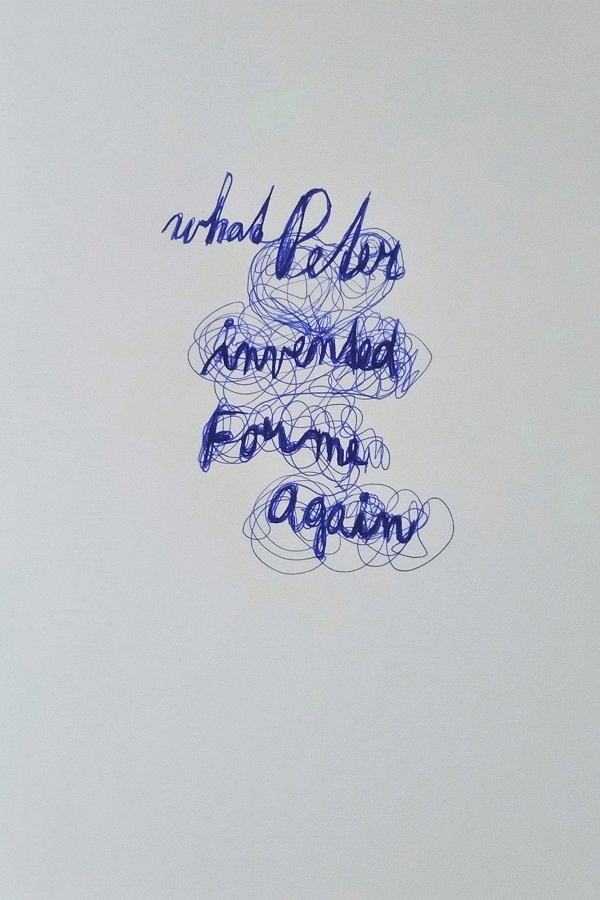 what Peter
invented
For me
again